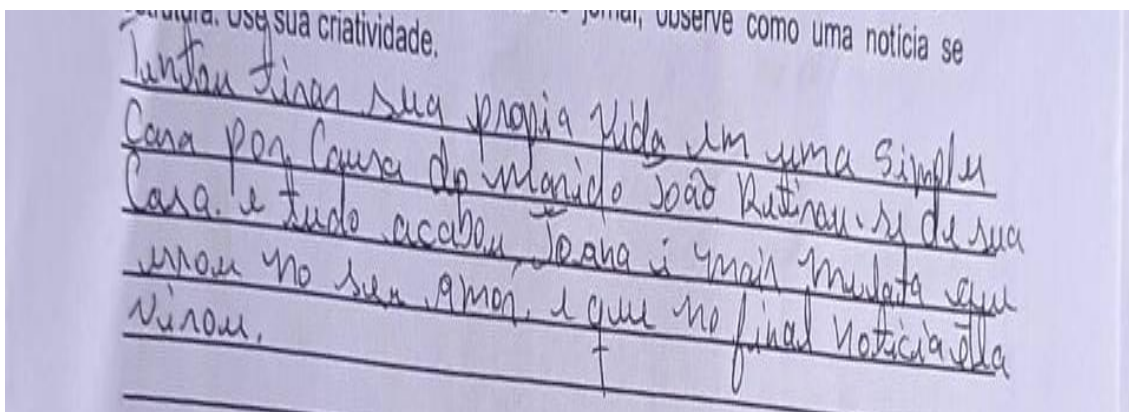 estrutura. Use sua criatividade. jornal, observe como uma notícia se
Tentou tirar sua propia vida em uma simples
Casa por Causa do marido João Retirou-se de sua
Casa. e tudo acabou, Joana é mais mulata que
errou no seu amor, e que no final noticia ella
Virou.